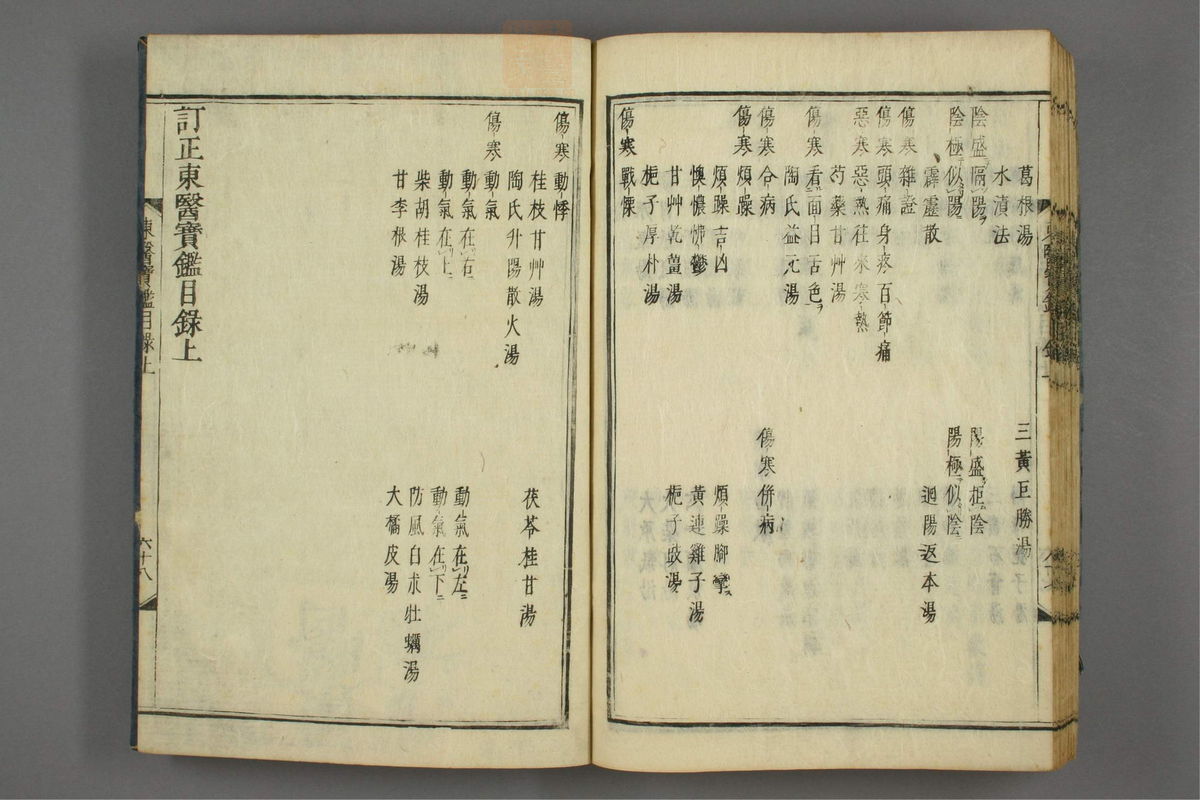 葛根湯
三黃巨勝湯
水漬法
陰盛隔陽ヲ
陽盛拒陰
陰極似陽
陽極似陰
霹靂散
廻陽返本湯
傷寒雜證
傷寒頭痛身疼百節痛
惡寒惡熱往來寒熱
芍藥甘艸湯
傷寒看面目舌色ヲ
陶氏益元湯
傷寒合病
傷寒併病
傷寒煩躁
煩躁吉凶
煩躁脚攣
懊憹怫鬱
黃連雞子湯
甘艸乾薑湯
梔子豉湯
梔子厚朴湯
傷寒戰慄
傷寒動悸
桂枝甘艸湯
茯苓桂甘湯
陶氏升陽散火湯
傷寒動氣
動氣在右ニ
動氣在左ニ
動氣在上ニ
動氣在下ニ
柴胡桂枝湯
防風白朮牡蠣湯
甘李根湯
大橘皮湯
訂正東醫寶鑑目錄上
東醫寶鑑目錄上
六十八